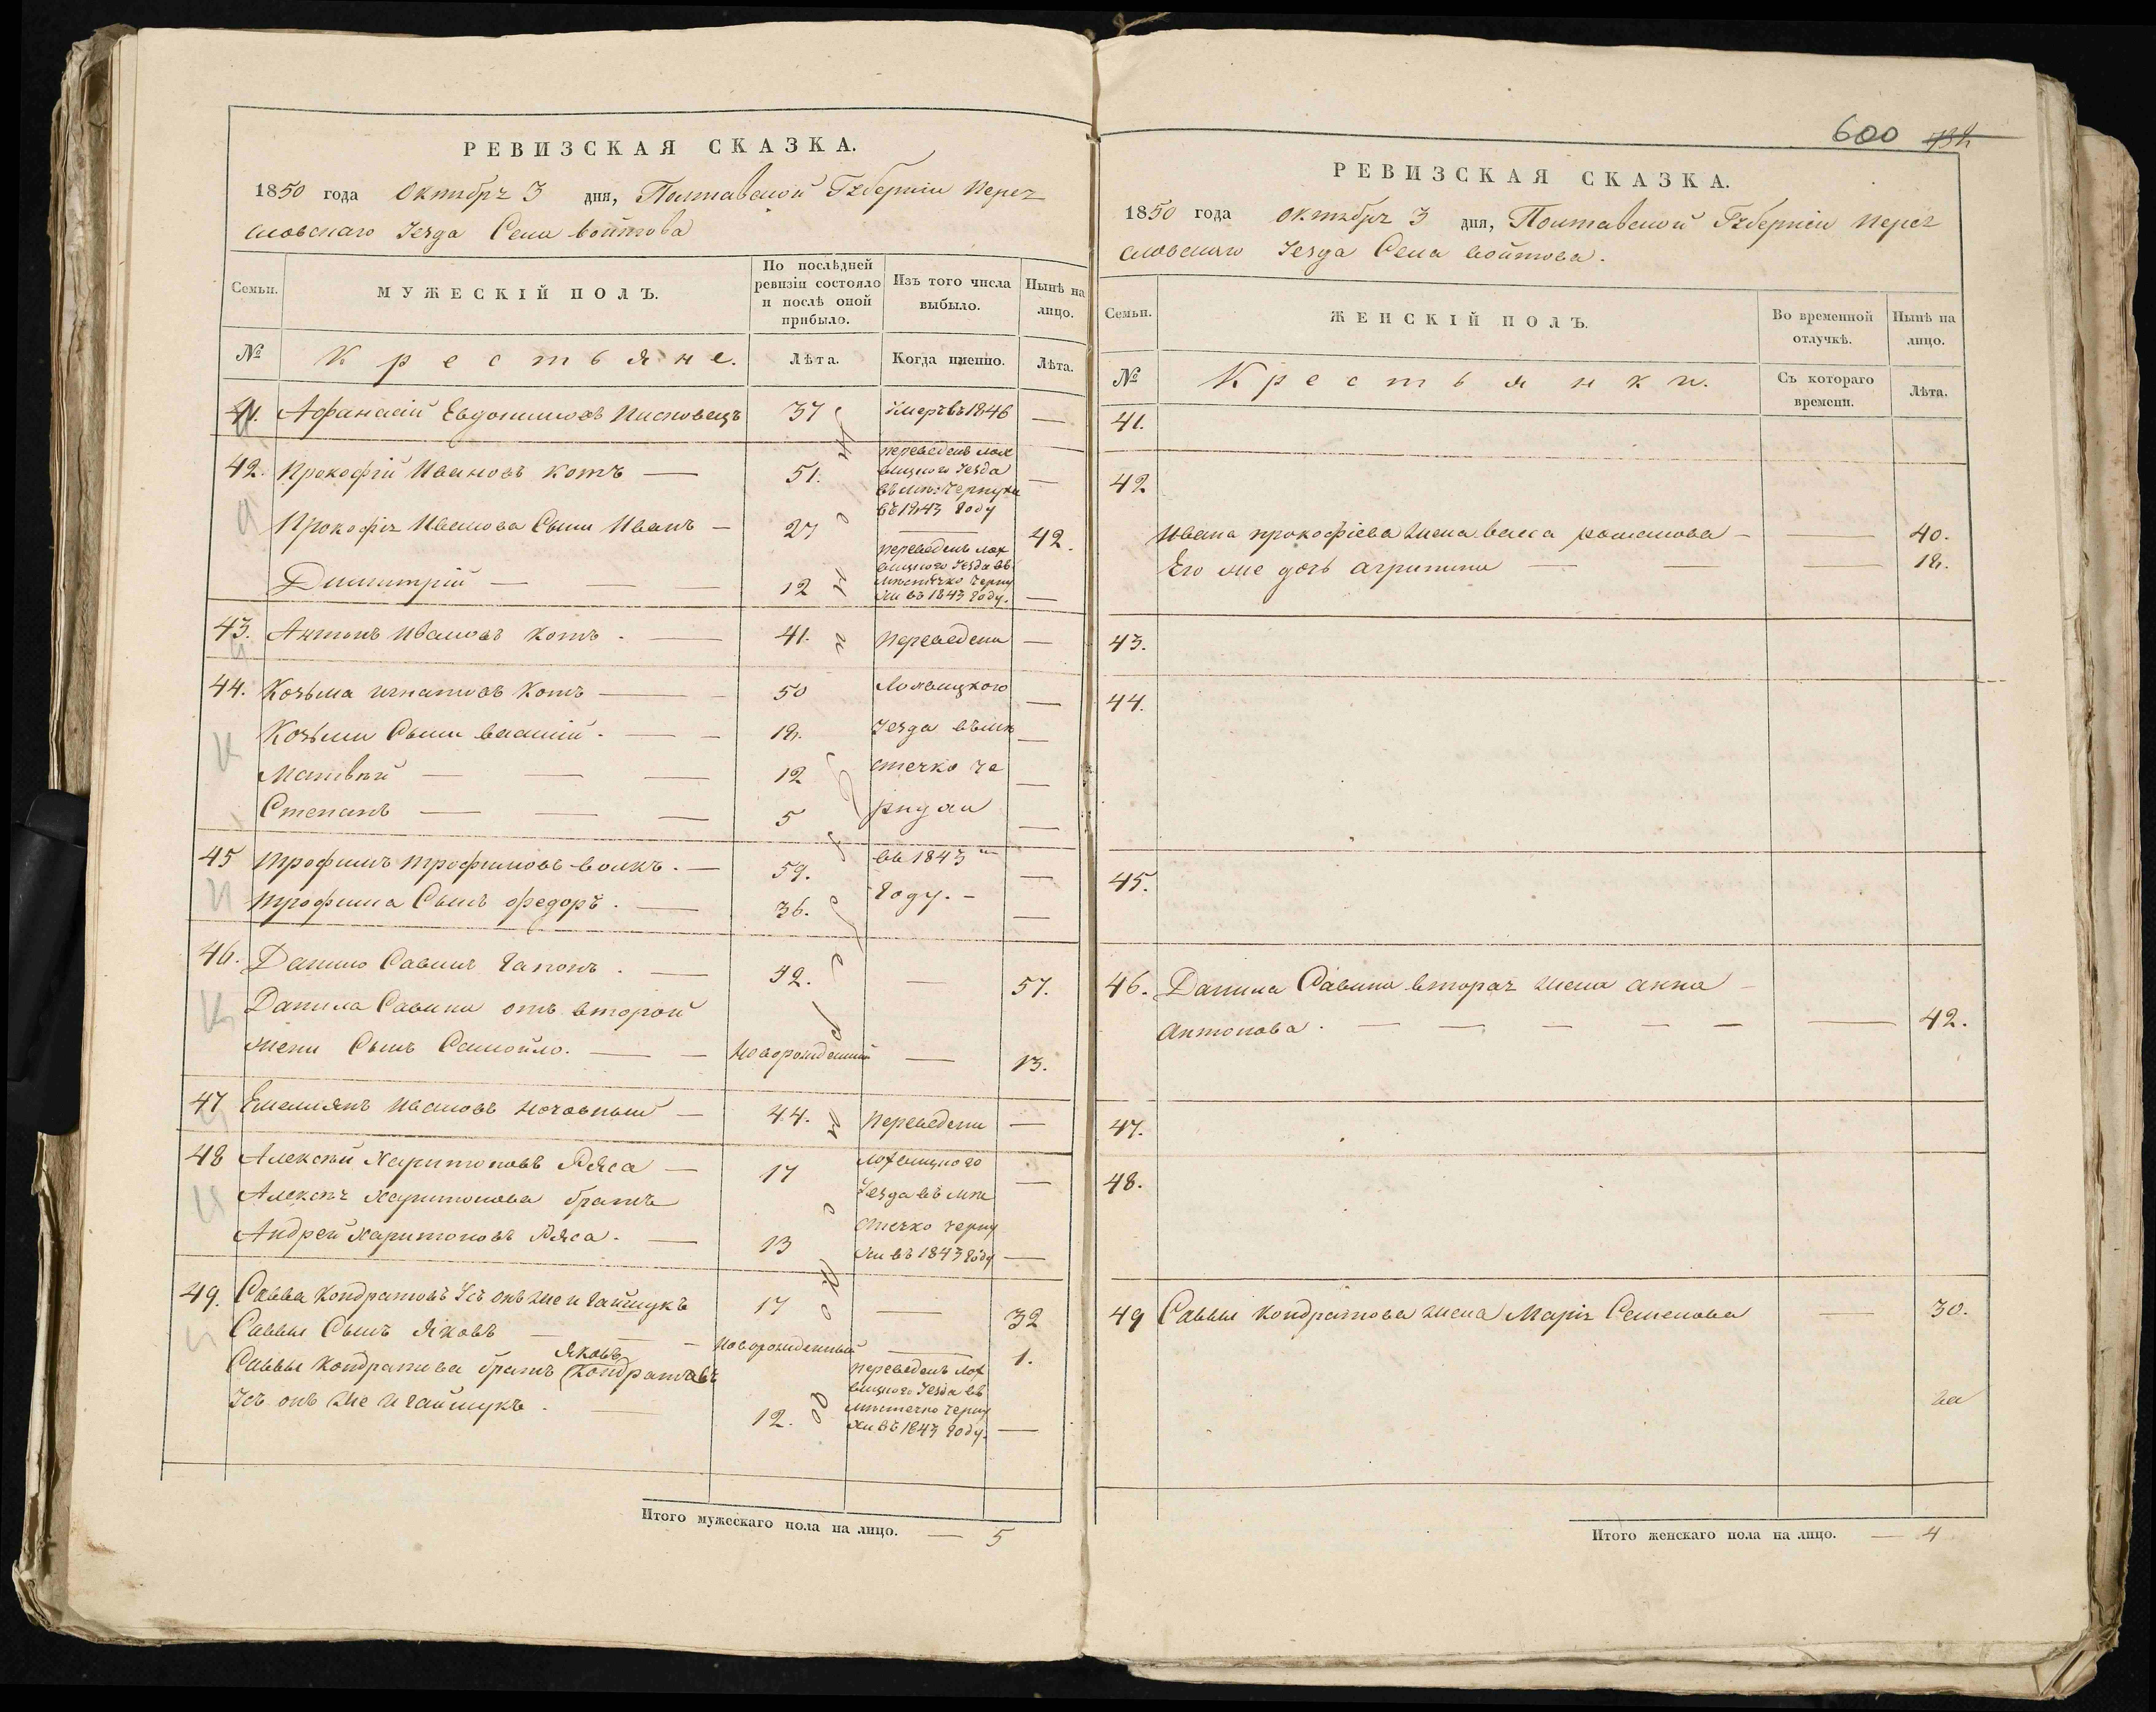 РЕВИЗСКАЯ СКАЗКА.
1850 года Октября 3 дня, Полтавской Губерніи Перея
словскаго Уезда Села Войтова
Семьи.
МУЖЕСКІЙ ПОЛЪ.
По послѣдней
ревизіи состояло
и послѣ оной
прибыло.
Изъ того числа
выбыло.
Нынѣ на
лицо.
№
Крестьяне.
Лѣта.
Когда именно.
Лѣта.
41. Афанасій Евдокимовъ 37 Умеръ въ 1846 —
42. Прокофій Ивановъ Котъ — 51.
переведенъ лох
вицкого Уезда
въ мѣ: Чернухи
въ 1843 году
—
Прокофія Иванова Сынъ Иванъ — 27 — 42.
Димитрій — — — 12
переведенъ лох
вицкого Уезда въ
мѣстечко Черну
хи въ 1843 году.
—
43. Антонъ Ивановъ Котъ. — 41. переведены —
44. Козьма Игнатовъ Котъ — — 50 Лохвицкого —
Козьмы Сыны Василій. — — 18. Уезда въ мѣ —
Матвѣй — — — 12 стечко Че —
Степанъ — — — 5 рнухи —
45 Трофимъ Трофимовъ Волкъ. — 59. въ 1843 м —
Трофима Сынъ Федоръ. — 36. году. — —
46. Данило Савинъ Гапонъ. — 42. — 57.
Данила Савина отъ второй
жены Сынъ Самойло. — — Новорожденный — 13.
47 Емельянъ Ивановъ — 44. переведены —
48 Алексѣй Харитоновъ Ряса — 17 Лохвицкого —
Алексѣя Харитонова братъ Уезда въ мѣ
Андрей Харитоновъ Ряса. — 13 стечко Черну
хи въ 1843 году —
49. Савва Кондратовъ Усъ онъ же и Гайшукъ 17 — 32
Саввы Сынъ Яковъ — — — Новорожденный — 1.
Яковъ
Саввы Кондратова братъ Кондратовъ
Усъ онъ же и Гайшукъ. — 12.
переведенъ Лох
вицкого Уезда въ
мѣстечко Черну
хи въ 1843 году.
—
Итого мужескаго пола на лицо. — 5
600
РЕВИЗСКАЯ СКАЗКА.
1850 года Октября 3 дня, Полтавской Губерніи Перея
словскаго Уезда Села Войтова.
Семьи.
ЖЕНСКІЙ ПОЛЪ.
Во временной
отлучкѣ.
Нынѣ на
лицо.
№
Крестьянки.
Съ котораго
времени.
Лѣта.
41.
42
Ивана Прокофіева жена Васса Романова — — 40.
Его же дочь Агрипина — — — 18.
43.
44.
45.
46. Данила Савина вторая жена Анна —
Антонова. — — — — — — 42.
47.
48.
49 Саввы Кондратова жена Марія Семенова — 30.
Итого женскаго пола на лицо. — 4